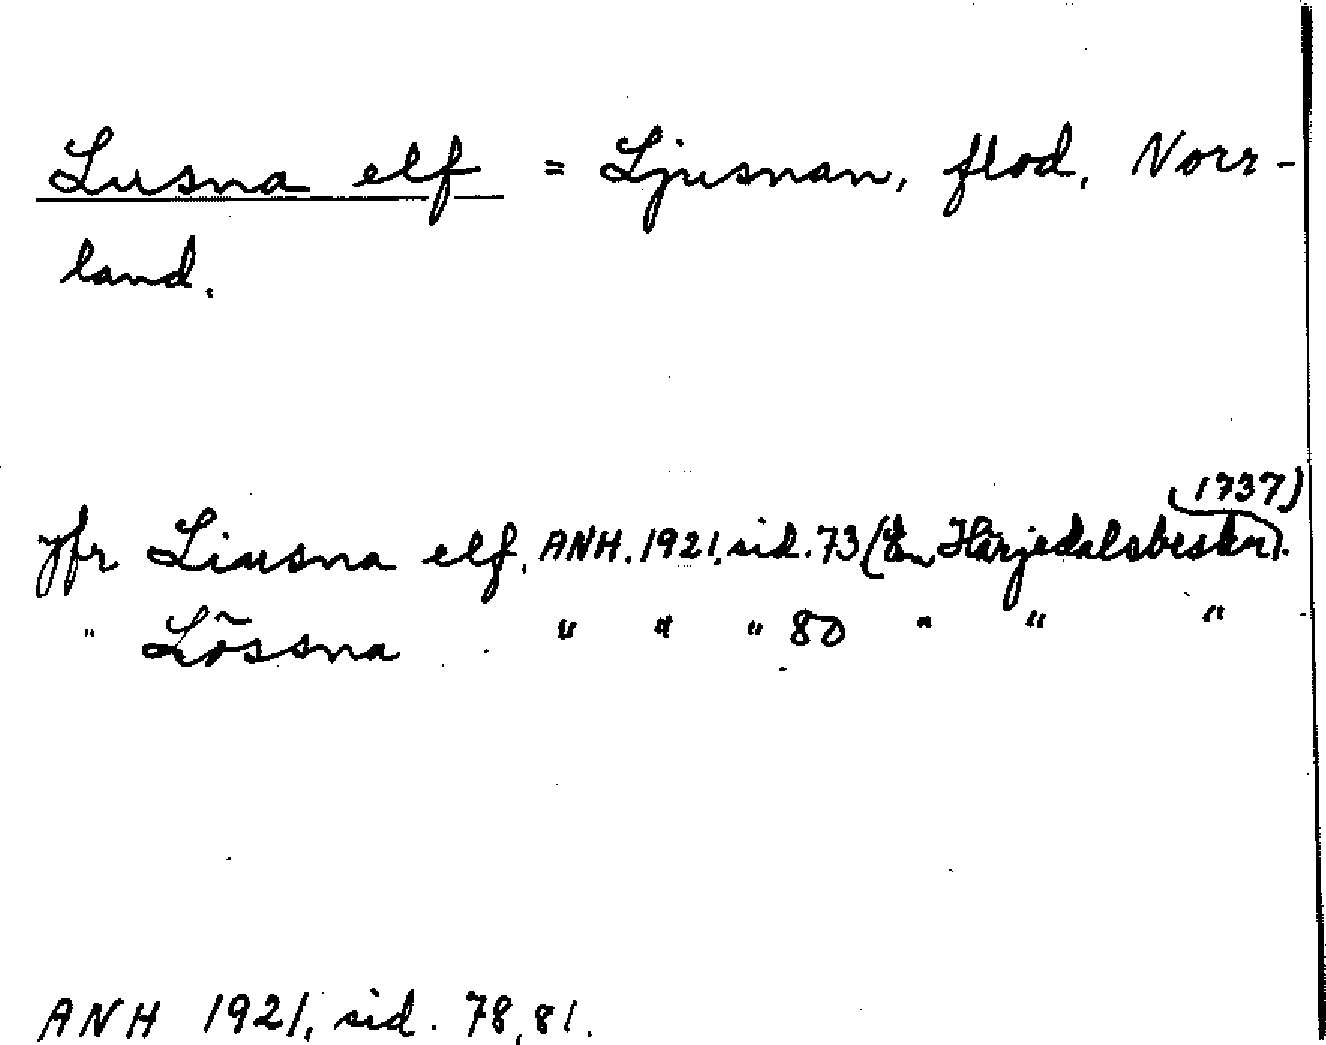 Lusna elf = Ljusnan, flod, Norr-
land.
jfr Liusna elf, ANH. 1921, sid. 73 (En Härjedalsbeskr. 1737).
" Lössna " " " 80 " " "
ANH 1921, sid. 78, 81.